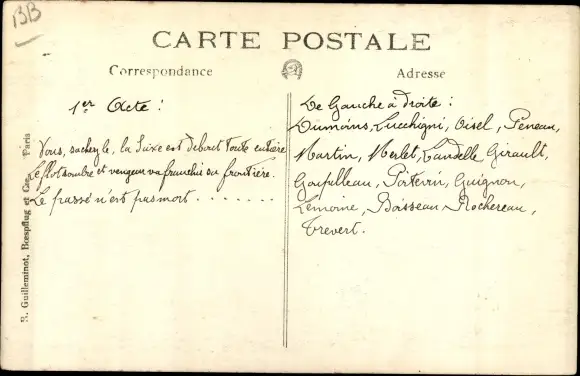 BB
CARTE POSTALE
Correspondance
Adresse
R. Guilleminot, Bœspflug et Cie. Paris
1er Acte :
Vous, sachez le, la Saxe est debout toute entière
Le flot sombre et vengeur va franchir sa frontière.
Le passé n'est pas mort . . . . . . .
De Gauche à droite :
Dumoins, Lucchigni, Oisel, Peneau,
Martin, Merlet, Landelle Girault,
Goupilleau, Poitevin, Guignon,
Lemoine, Boisseau Rochereau,
Trevert.